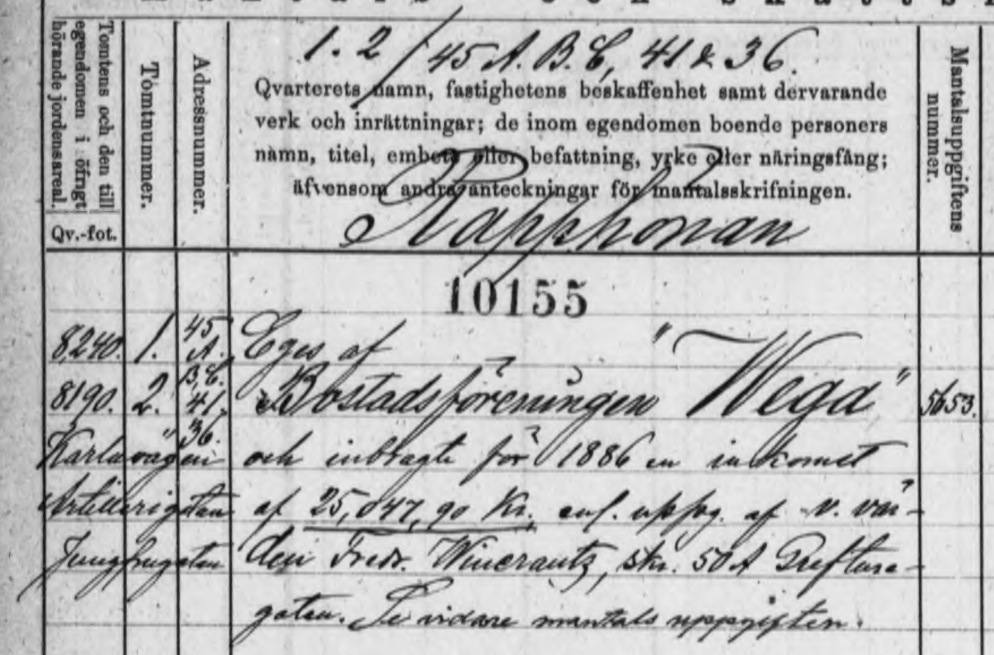 Tomtens och den till
egendomen i öfrigt
hörande jordensareal.
Qv.-fot.
Tomtnummer.
Adressnummer.
1. 2 / 45 A. B. C, 41 & 36.
Qvarterets namn, fastighetens beskaffenhet samt dervarande
verk och inrättningar; de inom egendomen boende personers
namn, titel, embete eller befattning, yrke eller näringsfång;
äfvensom andra anteckningar för mantalsskrifningen.
Rapphönan
Mantalsuppgiftens
nummer.
10155
8240. 1. 45 A. Eges af
8190. 2. B, C. 41. Bostadsföreningen "Wega" 5653.
36.
Karlavägen och inbragte för 1886 en inkomst
Artillerigatan af 25,047,90 Kr. enl. uppg. af v. vär-
Jungfrugatan den Fredr. Wincrantz, skr. 50 A Grefture-
gatan. Se vidare mantals uppgiften.